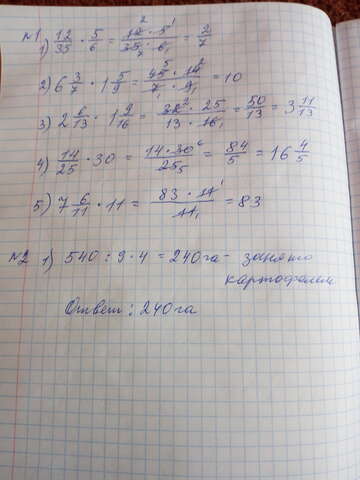 №1 1) 12/35 · 5/6 = 12 · 5/35 · 6 = 2/7
2) 6 3/7 · 1 5/9 = 45 · 14/7 · 9 = 10
3) 2 6/13 · 1 9/16 = 32 · 25/13 · 16 = 50/13 = 3 11/13
4) 14/25 · 30 = 14 · 30/25 = 84/5 = 16 4/5
5) 7 6/11 · 11 = 83 · 11/11 = 83
№2 1) 540 : 9 · 4 = 240 га - занято
картофелем
Ответ: 240 га